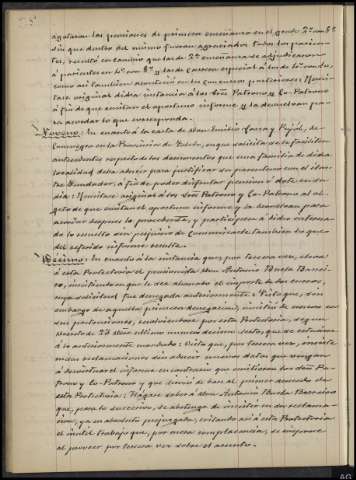 agotaran las pensiones de primera enseñanza en el grado 2º con 8º
sin que dentro del mismo fueran agraciados todos los parien-
tes, resulta en cambio que las de 2ª enseñanza se adjudicaron
á parientes en 4º con 8º y las de carrera especial á los de 4º con
como asi tambien aconteció en los concursos posteriores: Remi-
tase original dicha instancia á los Sres Patrono y Co-Patrono
á fin de que emitan el oportuno informe y la devuelvan pa-
ra acordar lo que corresponda.
Noveno: En cuanto á la carta de Don Emilio Garza y Pujól, de
en la Provincia de Toledo, en que solicita se le faciliten
antecedentes respecto de los documentos que una familia de dicha
localidad deba aducir para justificar su parentesco con el ilus-
tre Fundador, á fin de poder disfrutar pension ó dote en su
dia: Remitase original á los Sres Patrono y Co-Patrono al ob-
jeto de que emitan el oportuno informe y la devuelvan para
acordar despues lo procedente, y participese á dicho interesa-
do lo resuelto sin perjuicio de comunicarle tambien lo que
del referido informe resulte.
Décimo: En cuanto á la instancia que, por tercera vez, eleva
á esta Protectoría el pensionista Don Antonio Varela
insistiendo en que le sea abonado el importe de dos
cuya solicitud fue denegada anteriormente: Visto que, sin
embargo de aquella primera denegacion, insistió de nuevo en
sus pretensiones, recordandose por esta Protectoría, segun
acuerdo de 23 Abril último número décimo sexto, que se estuviera
á lo anteriormente acordado: Visto que, por tercera vez, insiste
en sus reclamaciones sin aducir nuevos datos que vengan
á desvirtuar el informe en contrario que emitieron los Sres Pa-
trono y Co-Patrono y que sirvió de base al primer acuerdo de
esta Protectoría: Hágase saber á Don Antonio Varela
que, para lo sucesivo, se abstenga de insistir en su reclama-
cion, ya en absoluto prejuzgada, evitando asi á esta Protectoría
el inútil trabajo que, por mera complacencia, se impone
al proveer por tercera vez sobre el asunto.